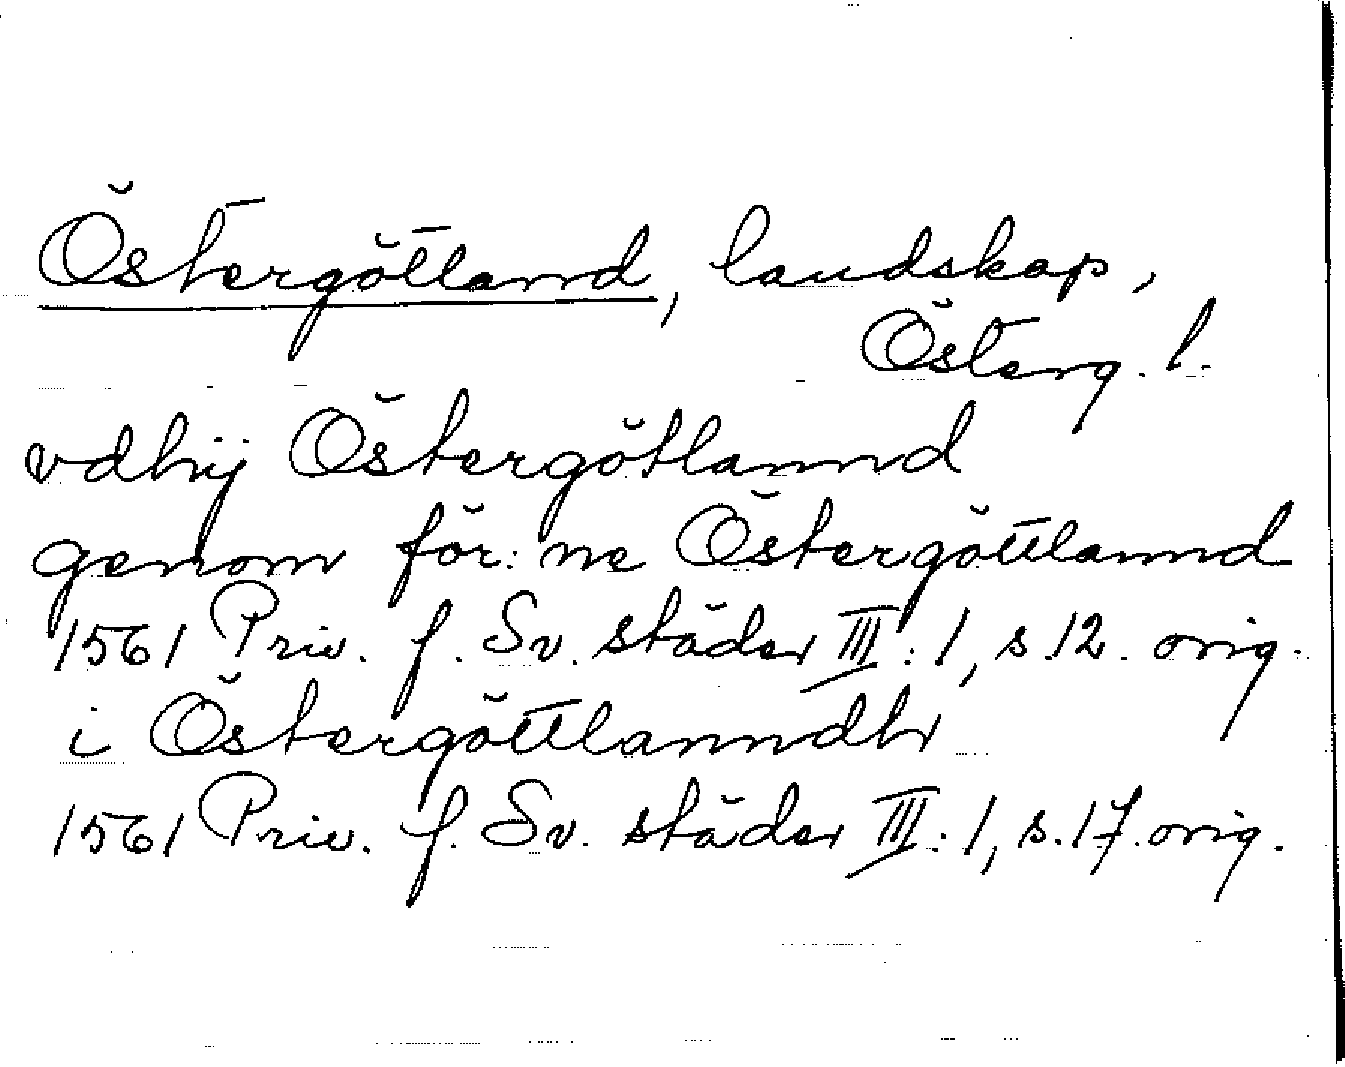 Östergötland, landskap,
Österg. l.
vdhij Östergötlannd
genom för: ne Östergöttlannd
1561 Priv. f. Sv. städer III: 1, s. 12. orig.
i Östergöttlanndh
1561 Priv. f. Sv. städer III: 1, s. 17. orig.